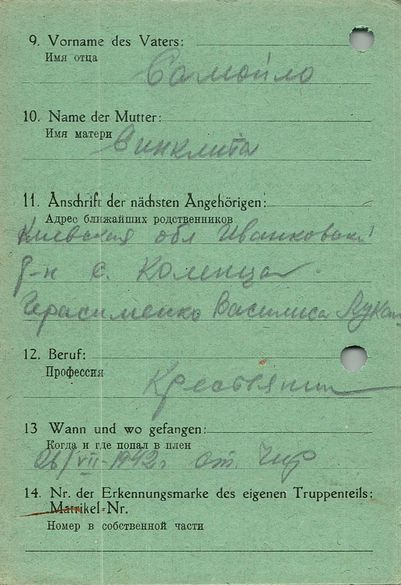 9. Vorname des Vaters:
Имя отца
Самойло
10. Name der Mutter:
Имя матери
Винклита
11. Anschrift der nächsten Angehörigen:
Адрес ближайших родственников
Киевская обл Иванковский
р-н с. Коленцы
Герасименко Василиса Лук
12. Beruf:
Профессия
Крестьянин
13 Wann und wo gefangen:
Когда и где попал в плен
26/VII-1942г ст. Чир
14. Nr. der Erkennungsmarke des eigenen Truppenteils:
Matrikel-Nr.
Номер в собственной части